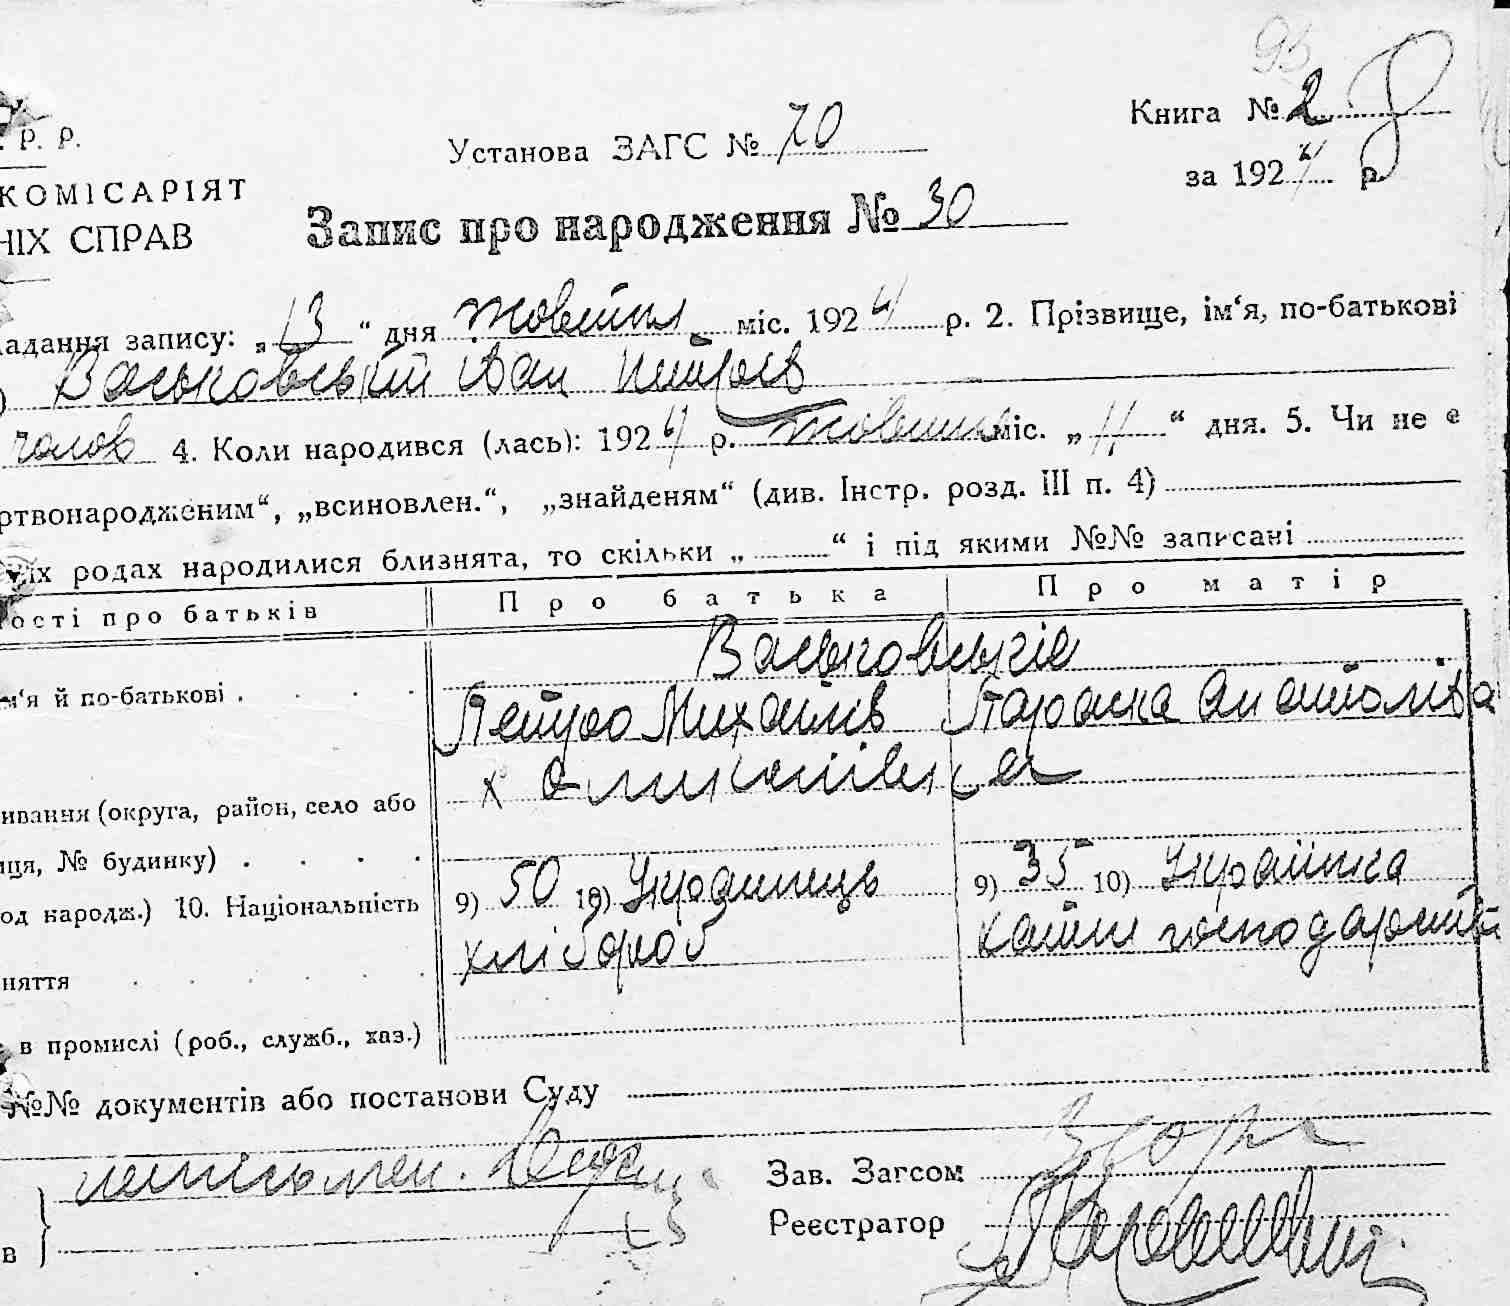 93
. Р. Р.
Книга № 2
Установа ЗАГС № 70
за 1924 р.
КОМІСАРІЯТ
НІХ СПРАВ
Запис про народження № 30
ладання запису: „13“ дня Жовтня міс. 1924 р. 2. Прізвище, ім‘я, по-батькові
) Васьковський Іван Петров
чолов 4. Коли народився (лась): 1924 р. Жовтня міс. „11“ дня. 5. Чи не є
ртвонародженим“, „всиновлен.“, „знайденям“ (див. Інстр. розд. III п. 4)
їх родах народилися близнята, то скільки „ “ і під якими №№ записані
ості про батьків Про батька Про матір
Васьковські
м‘я й по-батькові . Петро Михайлів Параска Анатоліва
х
ивання (округа, район, село або
иця, № будинку) .
од народж.) 10. Національність 9) 50 10) Українець 9) 35 10) Українка
няття хлібороб хатн господарств
в промислі (роб., служб., хаз.)
№№ документів або постанови Суду
неписьмен.
Зав. Загсом
в
Реєстратор